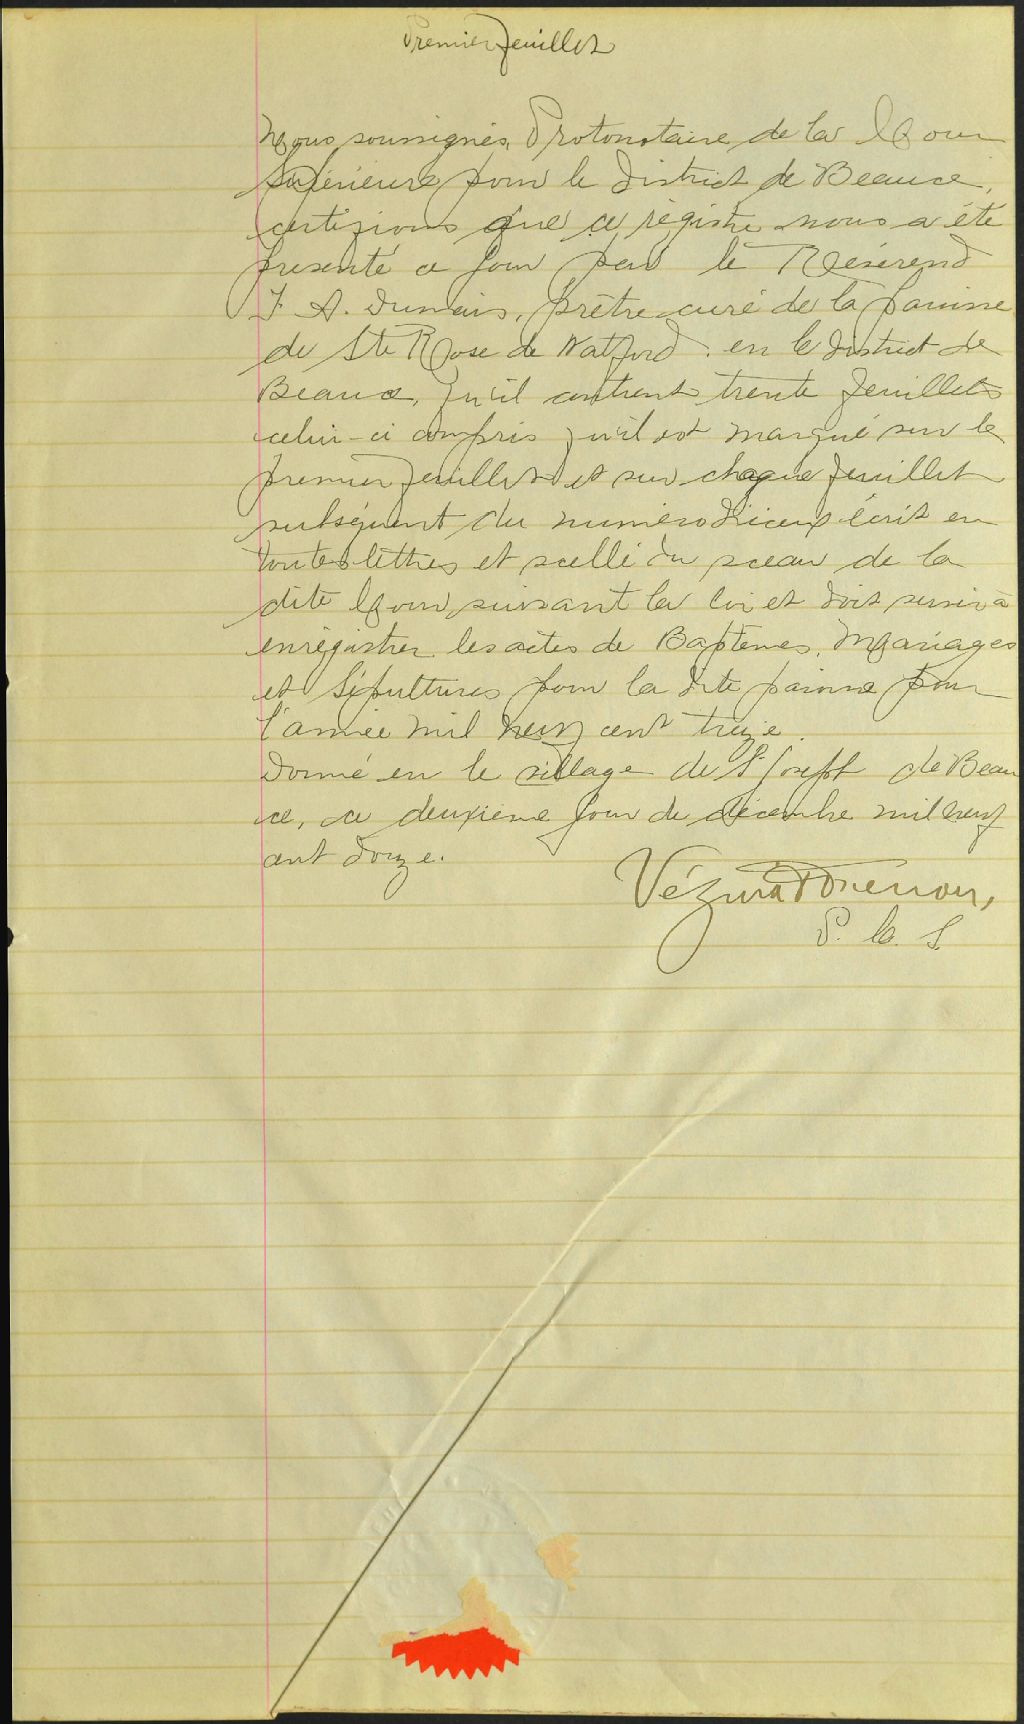 Premier feuillet
Nous soussignés, Protonotaire de la Cour
Supérieure pour le District de Beauce,
certifions que ce régistre nous a été
présenté ce jour par le Révérend
A. Dumais, prêtre curé de la paroisse
de Ste Rose de Watford, en le district de
Beauce, qu'il contient trente feuillets
celui-ci compris qu'il est marqué sur le
premier feuillet et sur chaque feuillet
subséquent du numéro d'iceux écrit en
toutes lettres et scellé du sceau de la
dite Cour suivant la loi et doit servir à
enrégistrer les actes de Baptêmes, Mariages
et Sépultures pour la dite paroisse pour
l'année mil neuf cent treize.
Donné en le village de St Joseph de Beau
ce, ce deuxième jour de décembre mil neuf
cent douze.
Vézina
P. C. S.